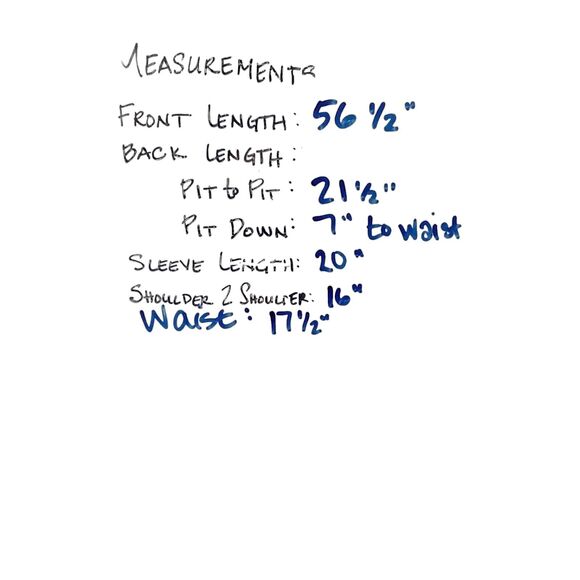 MEASUREMENTS
FRONT LENGTH: 56 1/2"
BACK LENGTH:
PIT to PIT: 21 1/2"
PIT DOWN: 7" to waist
SLEEVE LENGTH: 20"
SHOULDER 2 SHOULDER: 16"
Waist: 17 1/2"